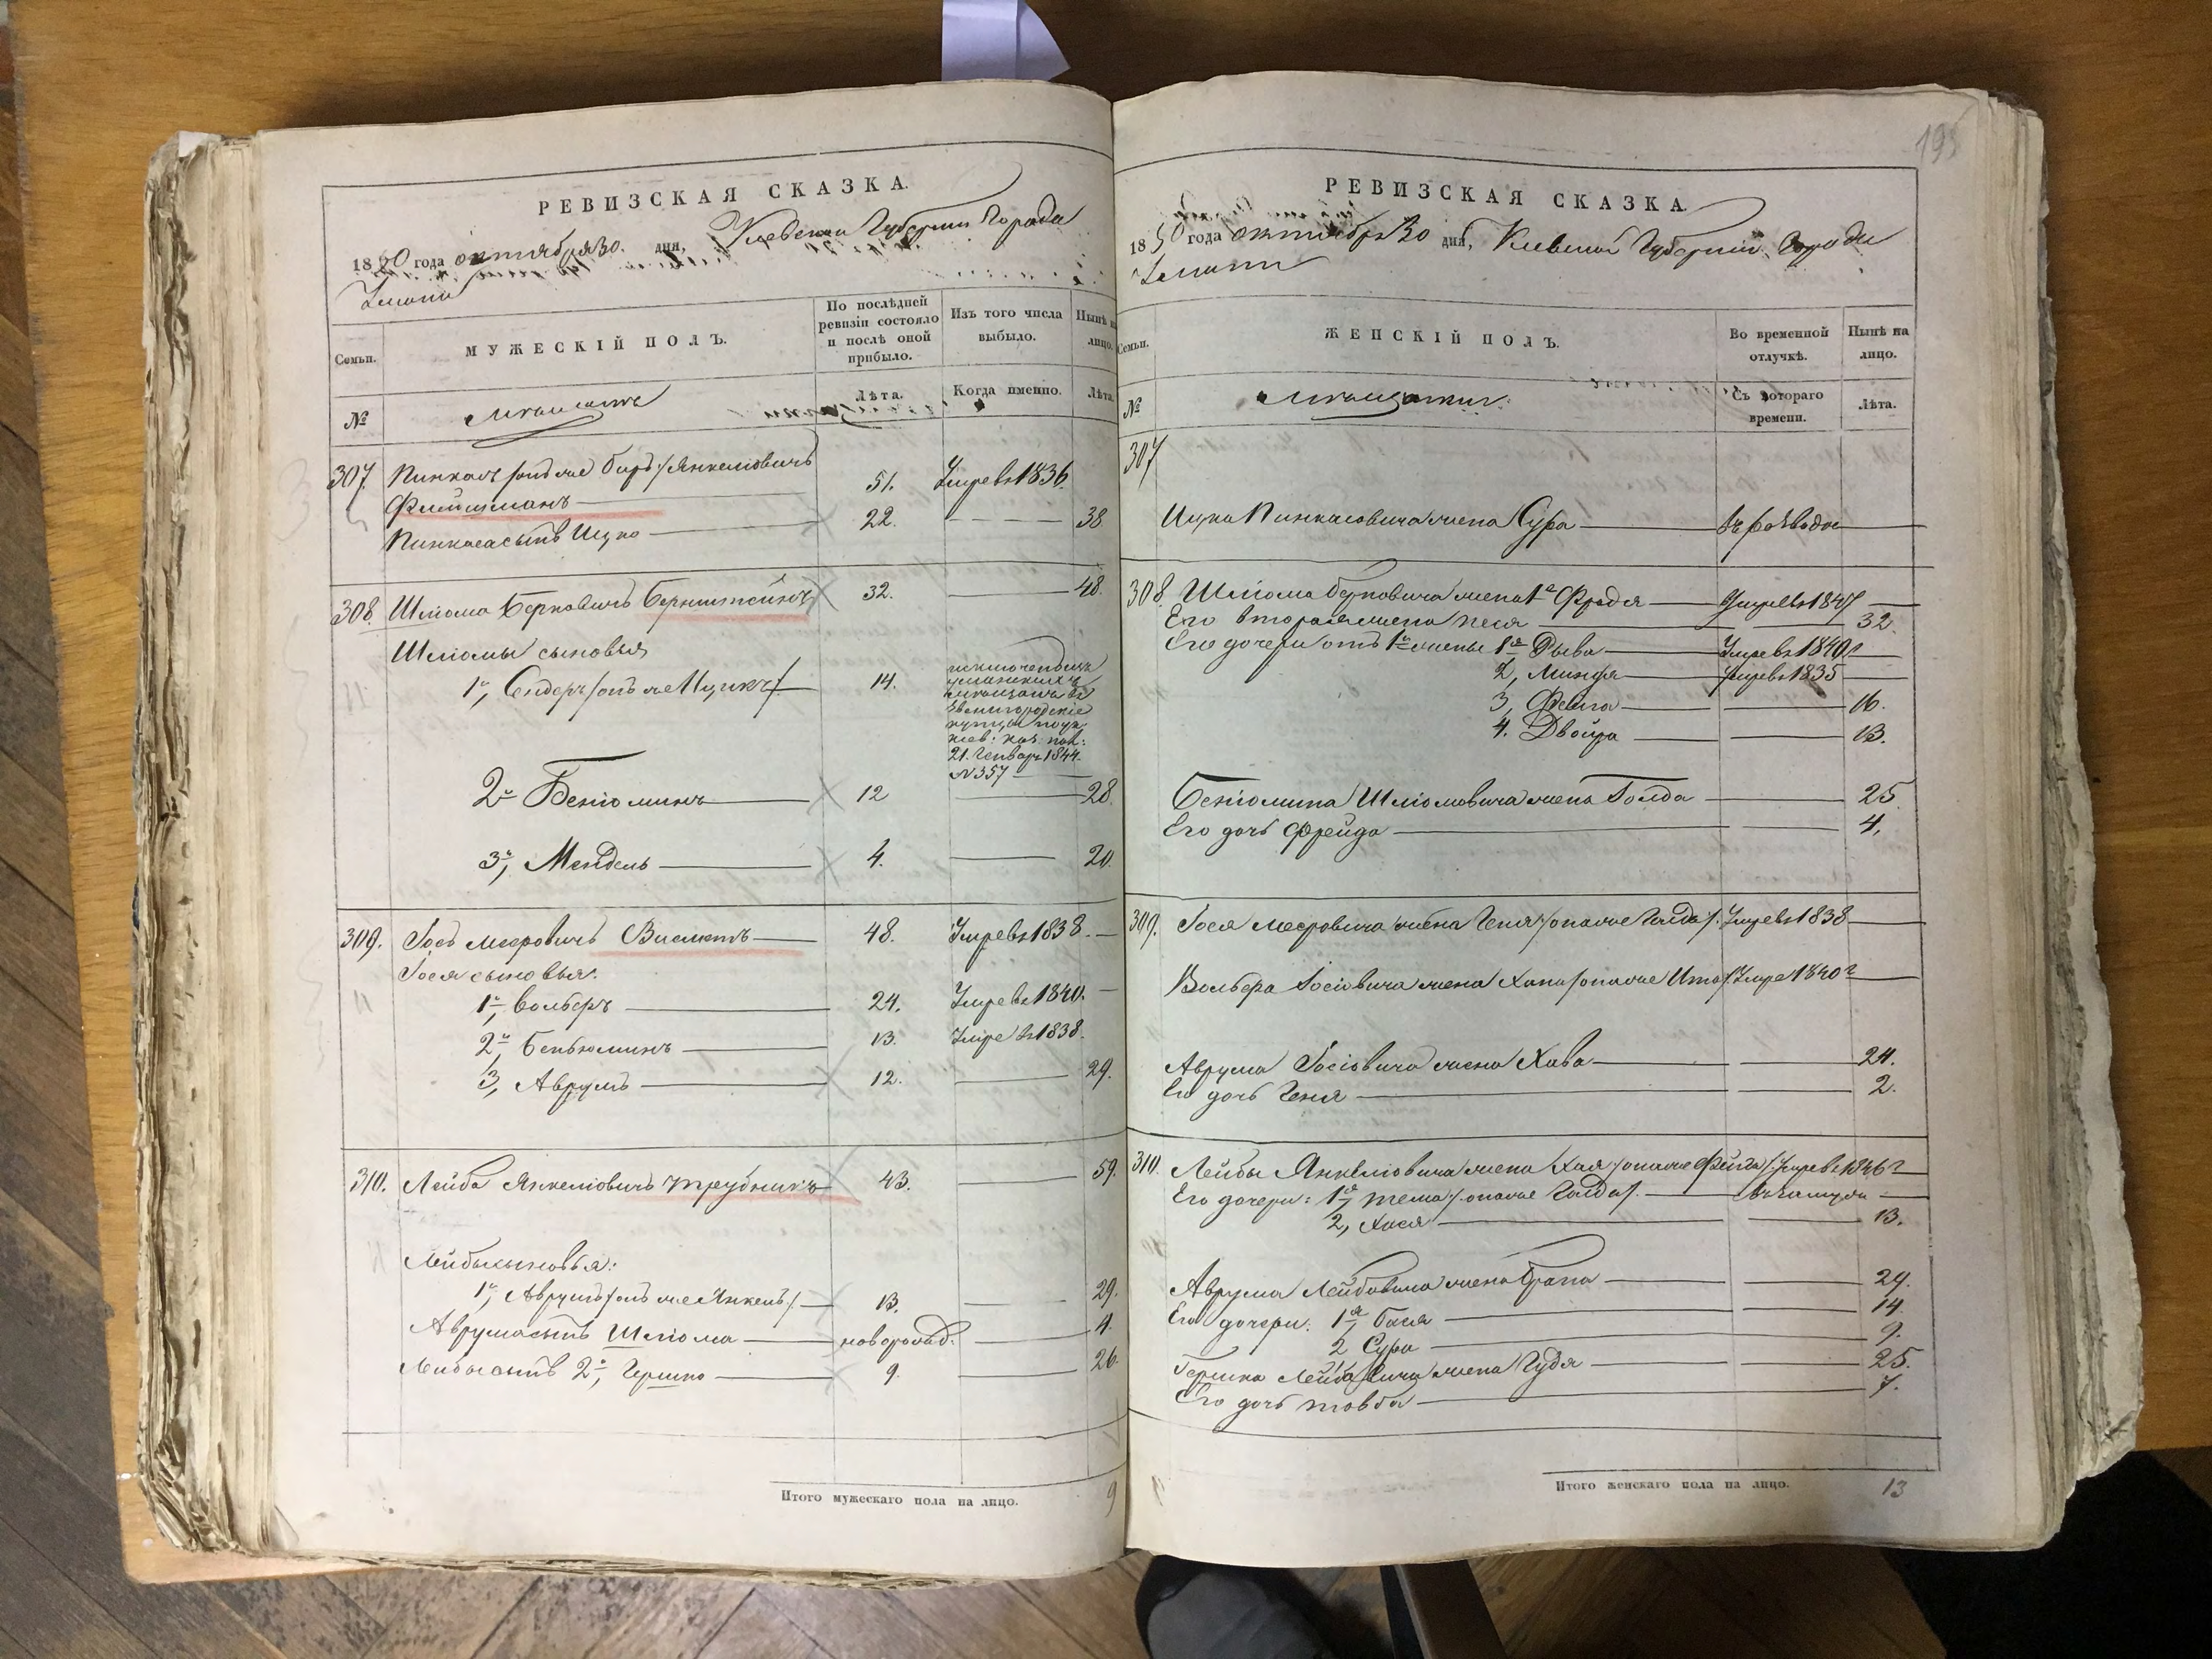 РЕВИЗСКАЯ СКАЗКА.
1850 года октября 30. дня, Киевской Губернии Города
Умани
Семьи.
МУЖЕСКІЙ ПОЛЪ.
По послѣдней ревизіи состояло и послѣ оной прибыло.
Изъ того числа выбыло.
Нынѣ на лицо.
№
Мещане
Лѣта.
Когда именно.
Лѣта.
307. Пинкась Янкеліовичъ
Фишманъ 51. Умре въ 1836
Пинкаса сынъ Ицко 22. 38
308. Шліома Берковичъ Бернштейнъ 32. 48.
Шліомы сыновья
1й, Сендеръ /онъ же Ицикъ/ 14.
21. Генваря 1844.
№357
2й Беніоминъ 12 28.
3й, Мендель 4. 20.
309. Іось Меєровичъ 48. Умре въ 1838.
Іося сыновья:
1й, Вольфъ 24. Умре въ 1840.
2й, Беньюминъ 13. Умре въ 1838.
3, Аврумъ 12. 29.
310. Лейба Янкеліовичъ Трубникъ 43. 59.
Лейбы сыновья:
1й, Аврумъ /онъ же Янкель/ 13. 29.
Аврума сынъ Шліома новорожд: 4.
Лейбы сынъ 2й, Гершко 9. 26.
Итого мужескаго пола на лицо. 9
195
РЕВИЗСКАЯ СКАЗКА.
1850 года октября 30 дня, Киевской Губернии Города
Умани
Семьи.
ЖЕНСКІЙ ПОЛЪ.
Во временной отлучкѣ.
Нынѣ на лицо.
№
Мещанки
Съ котораго времени.
Лѣта.
307
Ицка Пинкасовича жена Сура въ розводе
308. Шліома Берковича жена 1я Фрадя Умре въ 1847
Его вторая жена Песя 32.
Его дочери отъ 1й жены 1я Рыва Умре въ 1840
2, Миндя Умре въ 1835
3, Фейга 16.
4. Двойра 13.
Беніомина Шліомовича жена Голда 25.
Его дочь Фрейда 4.
309. Іося Меєровича жена Геня /она же Голда/. Умре въ 1838
Вольфа Іосіовича жена Хана /она же Ита/ Умре 1840 г
Аврума Іосіовича жена Хава 24.
Его дочь Геня 2.
310. Лейбы Янкеліовича жена Хая /она же Фейга/. Умре въ 1846 г
Его дочери: 1я, Тема /она же Голда/. въ замужи
2, Хася 13.
Аврума Лейбовича жена 29.
Его дочери: 1я, Бася 14.
2 Сура 9.
Гершка Лейбовича жена Гудя 25.
Его дочь Товба 7.
Итого женскаго пола на лицо. 13